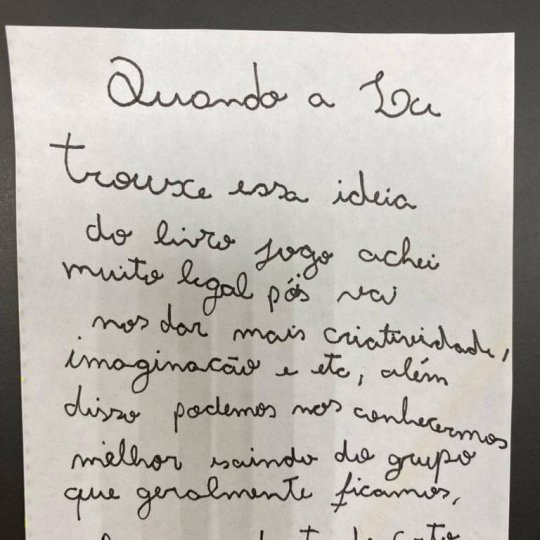 Quando a Lu
trouxe essa ideia
do livro jogo achei
muito legal pós vai
nos dar mais criatividade,
imaginacão e etc, além
disso podemos nos conhecermos
melhor saindo do grupo
que geralmente ficamos,